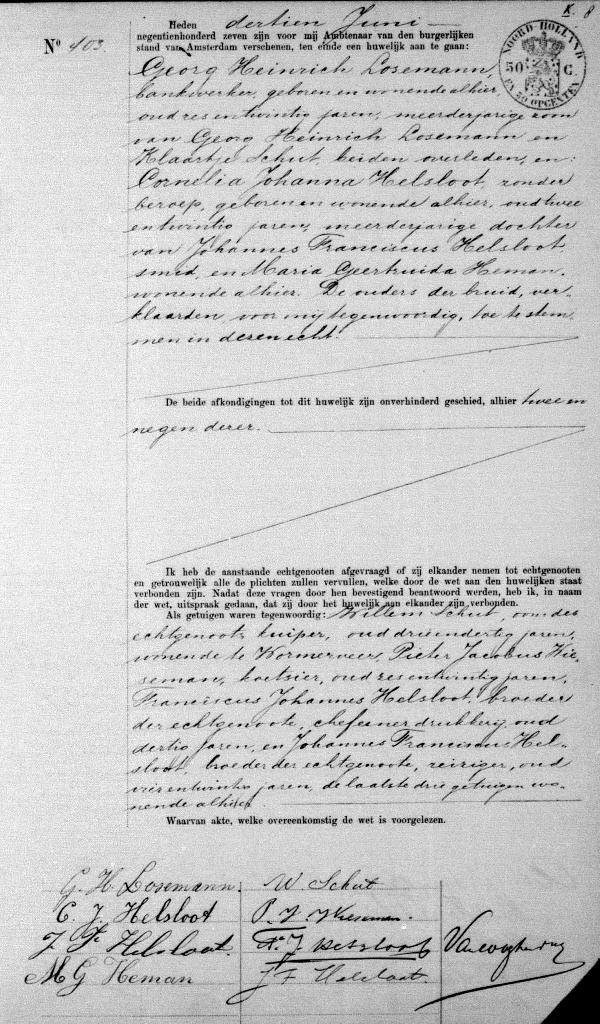 K. 8
Heden dertien Juni
negentienhonderd zeven zijn voor mij Ambtenaar van den burgerlijken
stand van Amsterdam verschenen, ten einde een huwelijk aan te gaan:
No 403.
NOORD-HOLLAND
50 C.
EN 50 OPCENTEN
Georg Heinrich Losemann,
bankwerker, geboren en wonende alhier,
oud zes en twintig jaren, meerderjarige zoon
van Georg Heinrich Losemann en
Klaartje Schut, beiden overleden, en:
Cornelia Johanna Helsloot, zonder
beroep, geboren en wonende alhier, oud twee
en twintig jaren, meerderjarige dochter
van Johannes Franciscus Helsloot
smid, en Maria Geertruida Heman,
wonende alhier. De ouders der bruid, ver-
klaarden, voor mij tegenwoordig, toe te stem-
men in dezen echt.
De beide afkondigingen tot dit huwelijk zijn onverhinderd geschied, alhier twee en
negen dezer.
Ik heb de aanstaande echtgenooten afgevraagd of zij elkander nemen tot echtgenooten
en getrouwelijk alle de plichten zullen vervullen, welke door de wet aan den huwelijken staat
verbonden zijn. Nadat deze vragen door hen bevestigend beantwoord werden, heb ik, in naam
der wet, uitspraak gedaan, dat zij door het huwelijk aan elkander zijn verbonden.
Als getuigen waren tegenwoordig: Willem Schut, oom des
echtgenoots, kuiper, oud drie en dertig jaren,
wonende te Wormerveer, Pieter Jacobus Wie-
seman, koetsier, oud zes en twintig jaren,
Franciscus Johannes Helsloot, broeder
der echtgenoote, chef eener drukkerij, oud
dertig jaren, en Johannes Franciscus Hel-
sloot, broeder der echtgenoote, reiziger, oud
vier en twintig jaren, de laatste drie getuigen wo-
nende alhier.
Waarvan akte, welke overeenkomstig de wet is voorgelezen.
G. H. Losemann. W. Schut
C. J. Helsloot P. J. Wieseman
J. Fc Helsloot. Fs J Helsloot
M G Heman J F Helsloot.